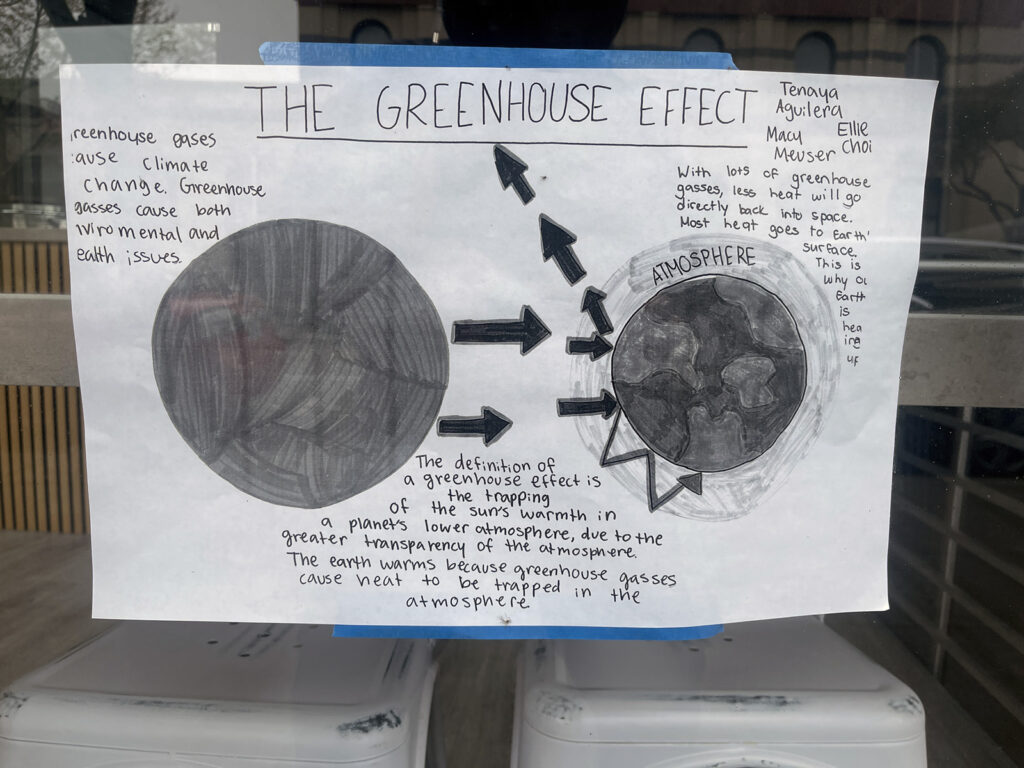 THE GREENHOUSE EFFECT
Tenaya
Aguilera
Macy
Meuser
Ellie
Choi
reenhouse gases
ause climate
change. Greenhouse
gasses cause both
nviromental and
ealth issues.
With lots of greenhouse
gasses, less heat will go
directly back into space.
Most heat goes to Earth'
surface.
This is
why ou
Earth
is
hea
ing
up
ATMOSPHERE
The definition of
a greenhouse effect is
the trapping
of the sun's warmth in
a planet's lower atmosphere, due to the
greater transparency of the atmosphere.
The earth warms because greenhouse gasses
cause heat to be trapped in the
atmosphere.